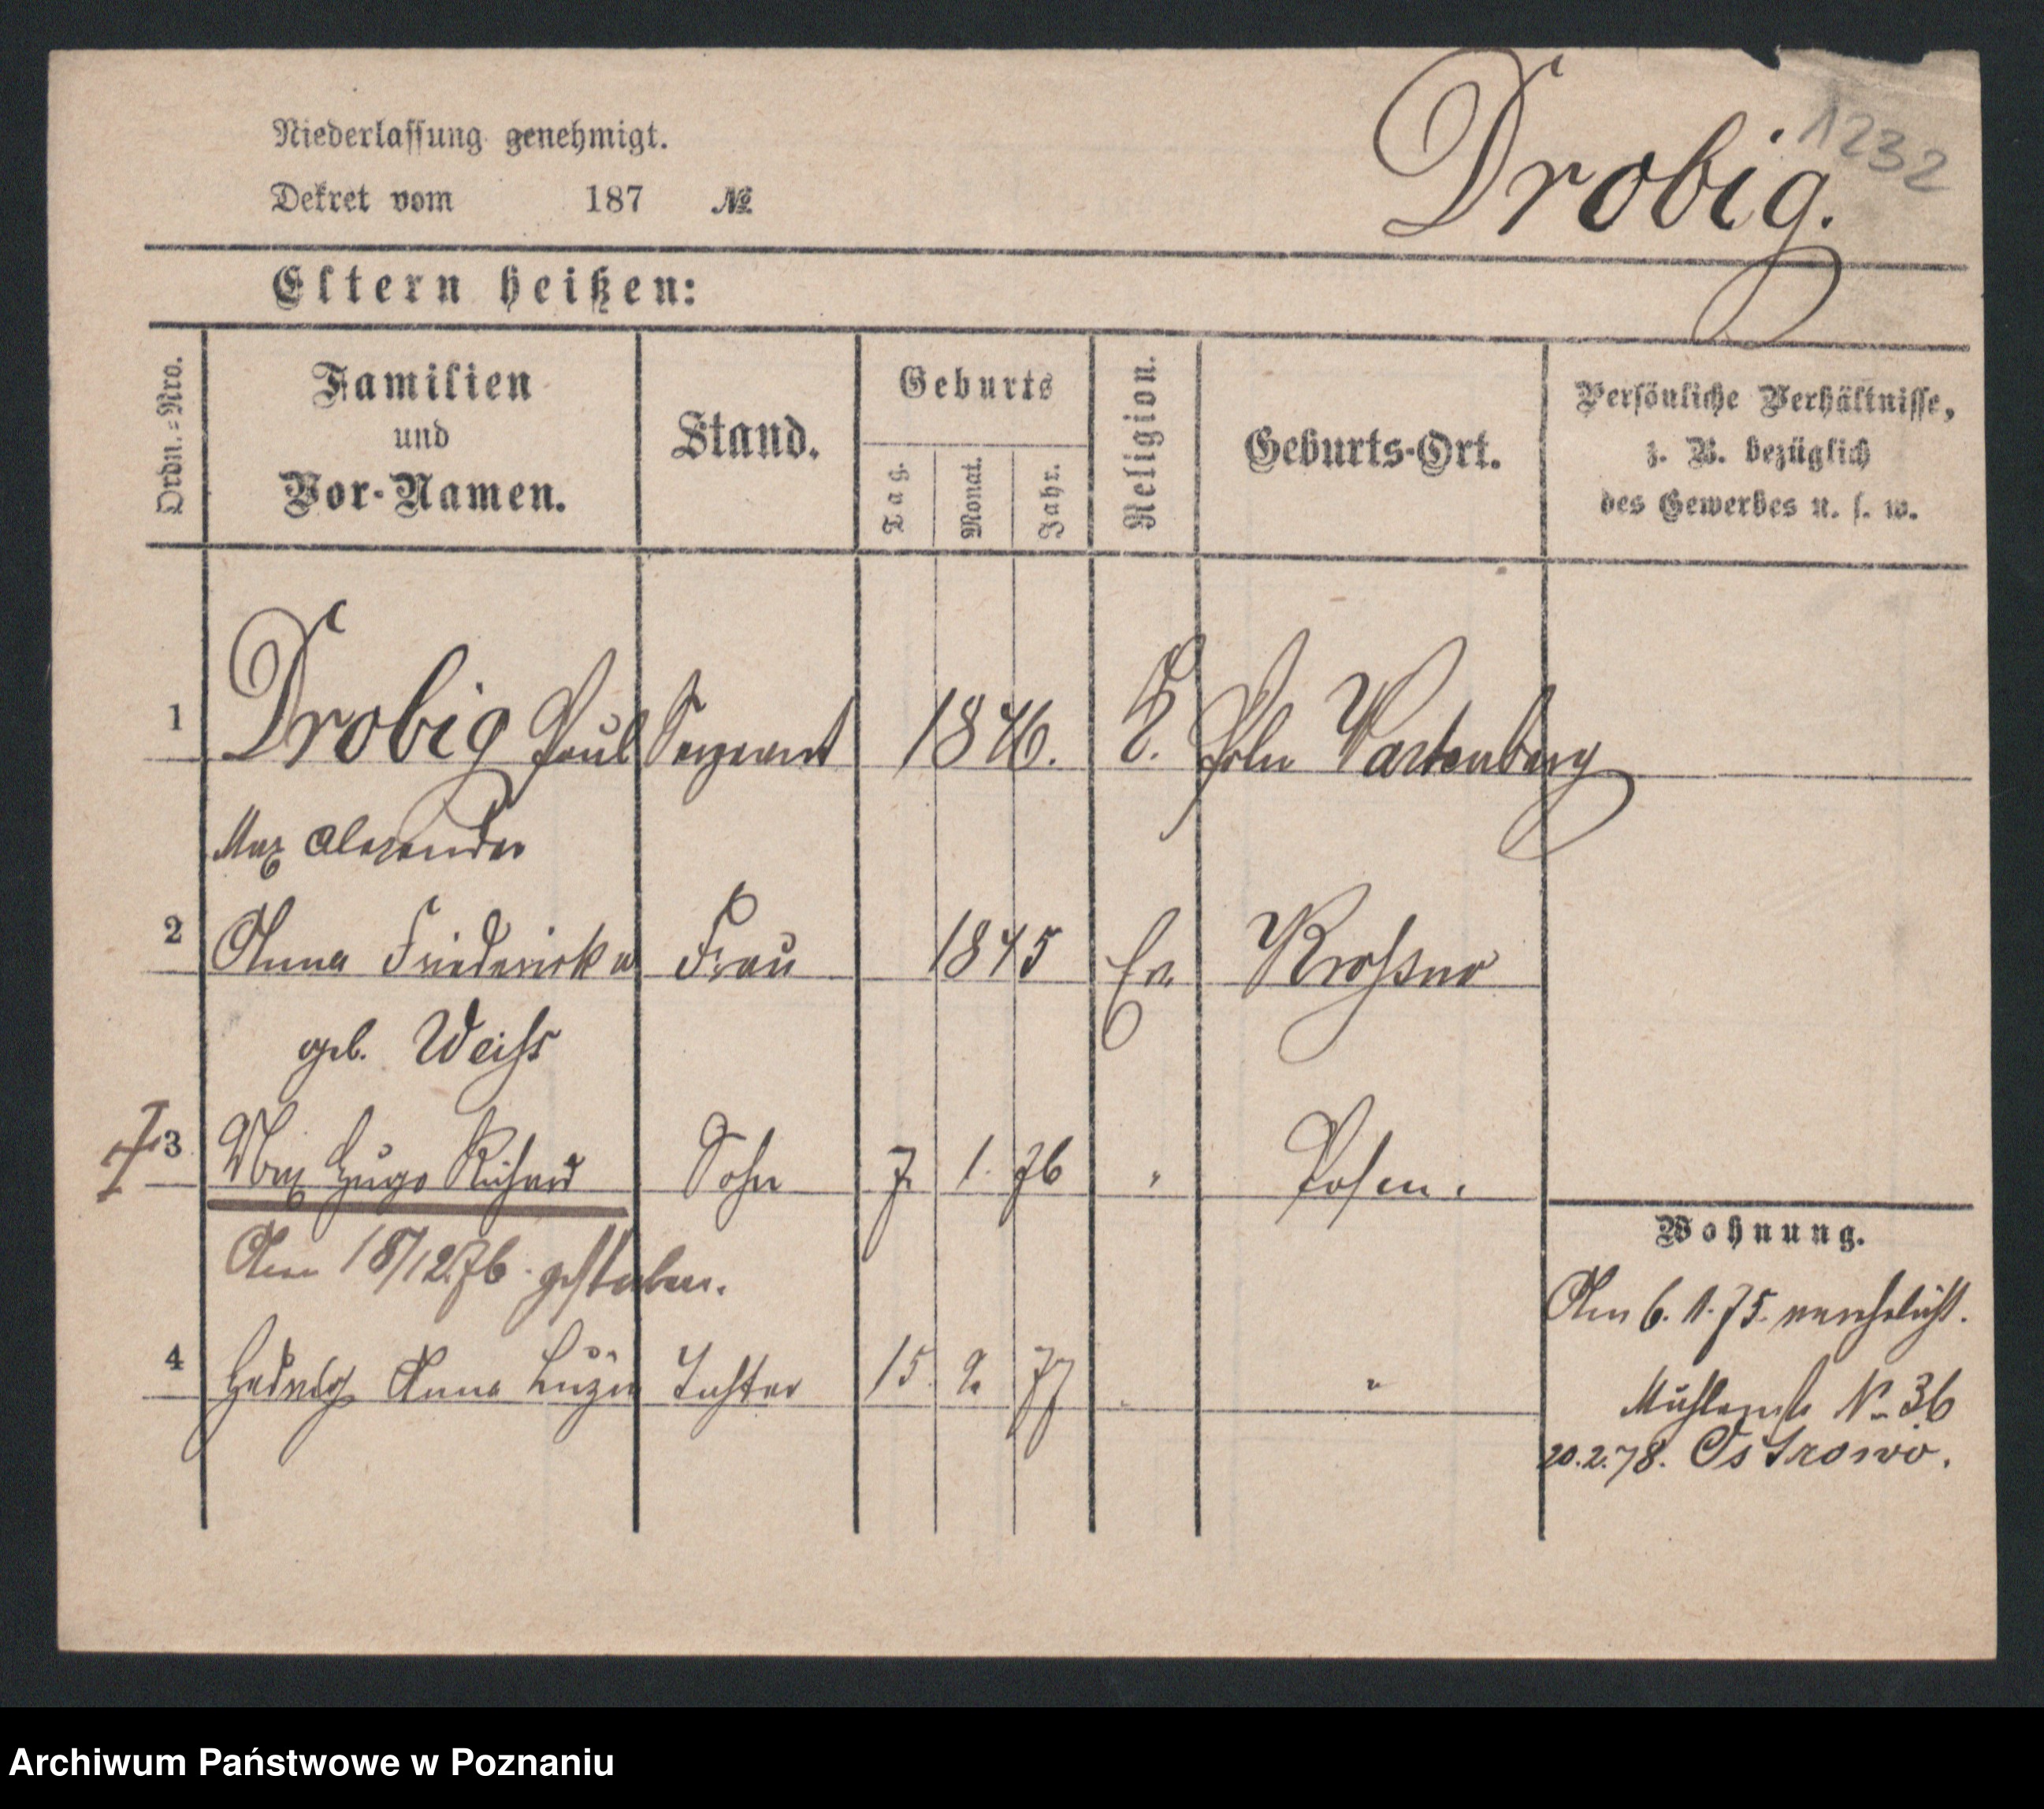 1232
Drobig.
Niederlassung genehmigt.
Dekret vom 187 №
Eltern heißen:
Ordn.=Nro.
Familien
und
Vor-Namen.
Stand.
Geburts
Tag.
Monat.
Jahr.
Religion.
Geburts-Ort.
Persönliche Verhältnisse,
z. B. bezüglich
des Gewerbes u. s. w.
1 Drobig Paul Sergeant 1846. E. Poln Wartenberg
Max Alexander
2 Anna Friedericke Frau 1845 Ev. Krossno
geb. Weiss
3 Max Hugo Richard Sohn 7. 1. 76 " Posen.
Am 18/12.76. gestorben.
4 Hedwig Anna Luzie Tochter 15. 2. 77 "
Wohnung.
Am 6. 1. 75. verehelicht.
Mühlenstr No 36
20.2.78. Ostrowo.
Archiwum Państwowe w Poznaniu